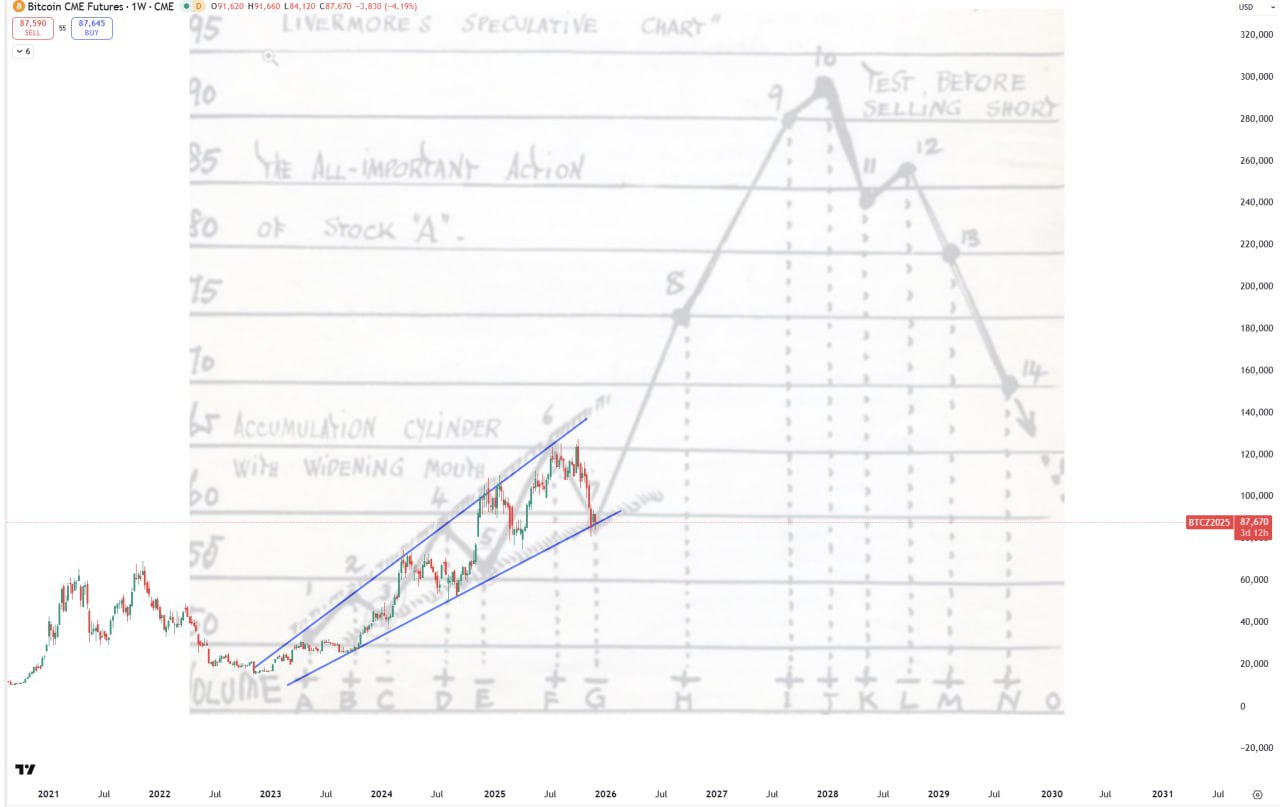 Bitcoin CME Futures · 1W · CME D O91,620 H91,660 L84,120 C87,670 −3,830 (−4.19%)
USD
87,590 SELL 55 87,645 BUY
6
95 LIVERMORE'S SPECULATIVE CHART"
320,000
10
300,000
90 9 TEST, BEFORE
SELLING SHORT
280,000
12
260,000
85 THE ALL-IMPORTANT ACTION 11
240,000
80 OF STOCK "A".
13
220,000
200,000
75 8
180,000
70
160,000
14
140,000
65 ACCUMULATION CYLINDER 6
120,000
WITH WIDENING MOUTH
60 4
100,000
BTCZ2025 87,670
3d 12h
55 5
2
60,000
1
50
40,000
20,000
VOLUME + + − + − + − + + + + − + +
A B C D E F G H I J K L M N O
0
−20,000
2021 Jul 2022 Jul 2023 Jul 2024 Jul 2025 Jul 2026 Jul 2027 Jul 2028 Jul 2029 Jul 2030 Jul 2031 Jul